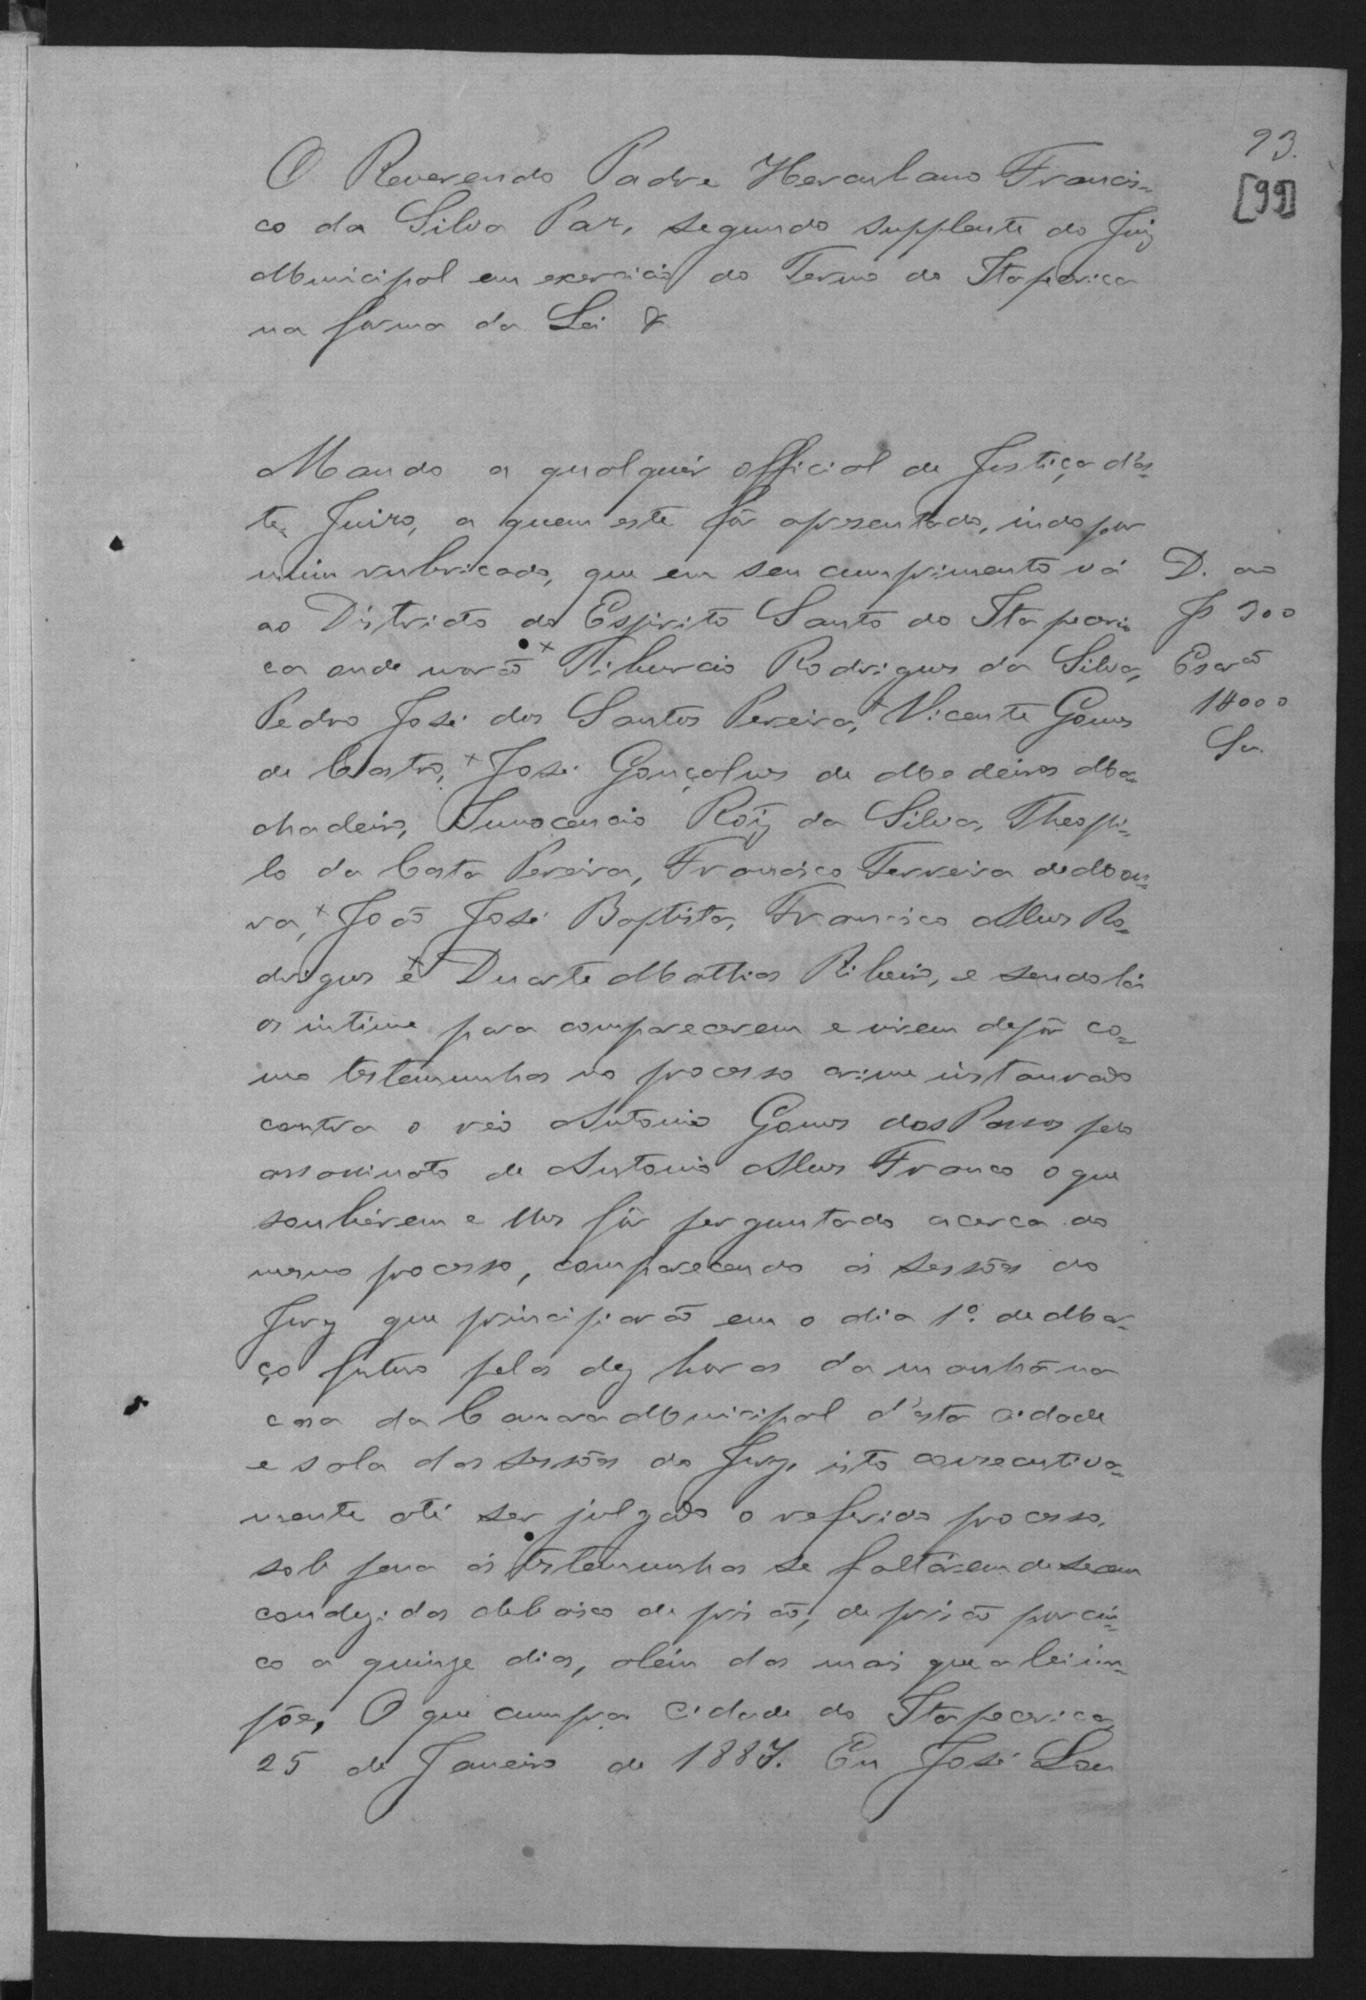 93.
[99]
O Reverendo Padre Herculano Francis-
co da Silva Paz, segundo supplente do Juiz
Municipal em exercicio do Termo de Itapecerica
na forma da Lei &
Mando a qualquér official de Justiça d'es-
te Juizo, a quem este fôr apresentado, indo por
mim rubricado, que em seu cumprimento vá
ao Districto do Espirito Santo da Itapeceri
ca onde morão × Tiburcio Rodrigues da Silva,
Pedro José dos Santos Pereira, × Vicente Gomes
de Castro, × José Gonçalves de Medeiros Ma-
chadeiro, Innocencio Roiz da Silva, Theophi-
lo da Costa Pereira, Francisco Ferreira de Mou-
ra, × João José Baptista, Francisco Alves Ro-
drigues e × Duarte Mathias Ribeiro, e sendo lá
os intime para comparecerem e virem depôr co-
mo testemunhas no processo crime instaurado
contra o réo Antonio Gomes dos Passos pelo
assassinato de Antonio Alves Franco o que
soubérem e lhes fôr perguntado acerca do
mesmo processo, comparecendo ás sessões do
Jury que principiarão em o dia 1º. de Mar-
ço futuro pelas dez horas da manhã na
casa da Camara Municipal d'esta cidade
e sala das sessões do Jury, isto consecutiva-
mente até ser julgado o referido processo,
sob pena ás testemunhas se faltárem de serem
condusidas debaixo de prisão, de prisão por cin-
co a quinze dias, além das mais que a lei im-
põe, O que cumpra Cidade de Itapecerica
25 de Janeiro de 1887. Eu José
D. ao
P 300
Esorão
1#000